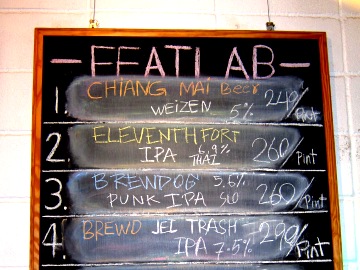 — FEATLAB —
1. CHIANG MAI Beer
WEIZEN 5% 240/Pint
2. ELEVENTH FORT
IPA 6.9% THAI 260/Pint
3. BREWDOG 5.6%
PUNK IPA 260/Pint
4. BREWD JET TRASH
IPA 7.5% 290/Pint